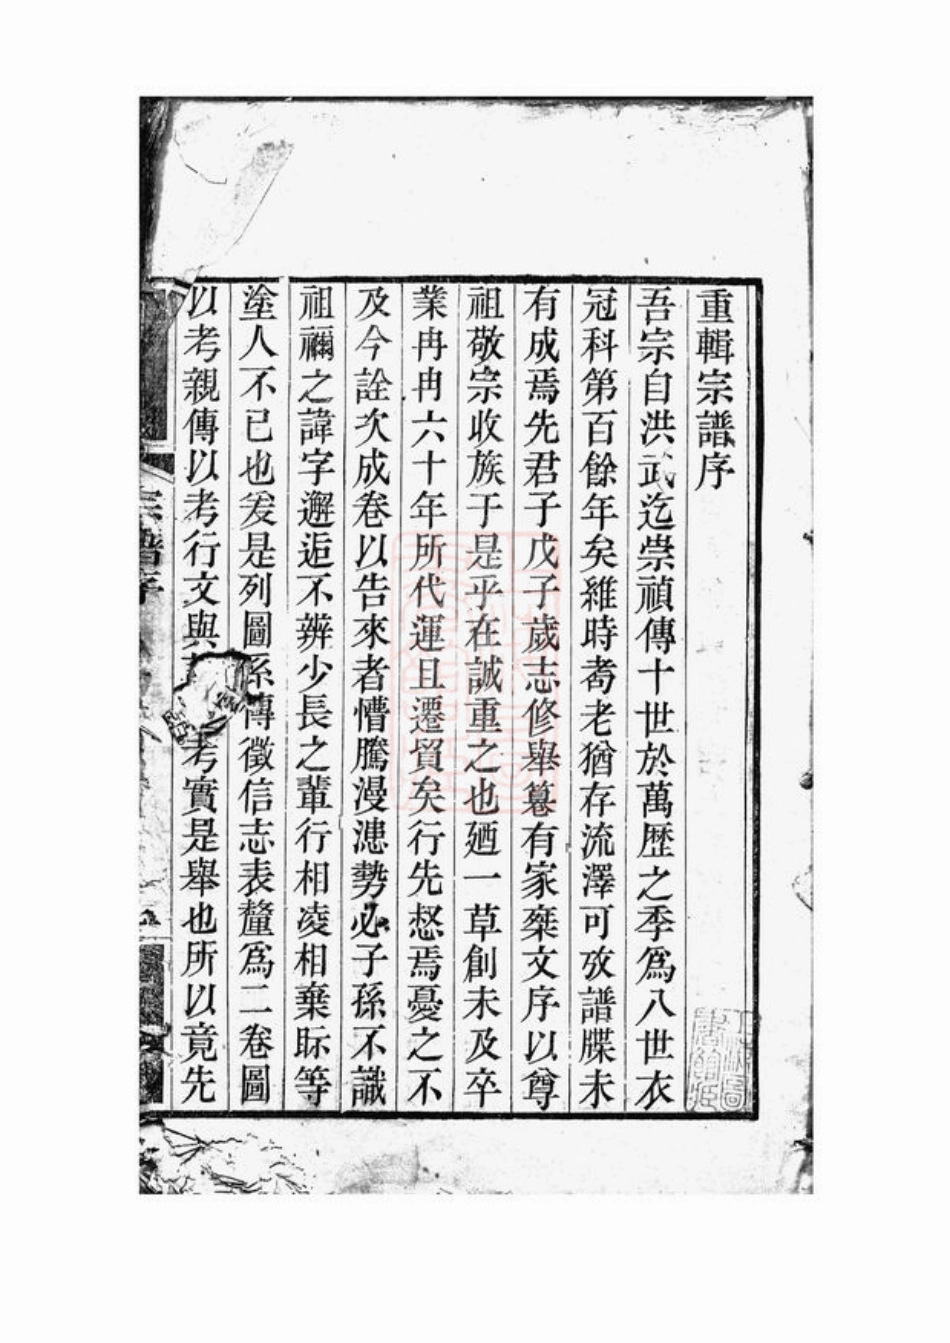 重輯宗譜序
吾宗自洪武迄崇禎傳十世於萬歷之季爲八世衣
冠科第百餘年矣維時耉老猶存流澤可攷譜牒未
有成焉先君子戊子歲志修舉篹有家椉文序以尊
祖敬宗收族于是乎在誠重之也廼一草創未及卒
業冉冉六十年所代運且遷貿矣行先惄焉憂之不
及今詮次成卷以告來者懵騰漫漶勢必子孫不識
祖禰之諱字邂逅不辨少長之輩行相凌相棄眎等
塗人不已也爰是列圖系傳徵信志表釐爲二卷圖
以考親傳以考行文與考實是舉也所以竟先
宗譜序